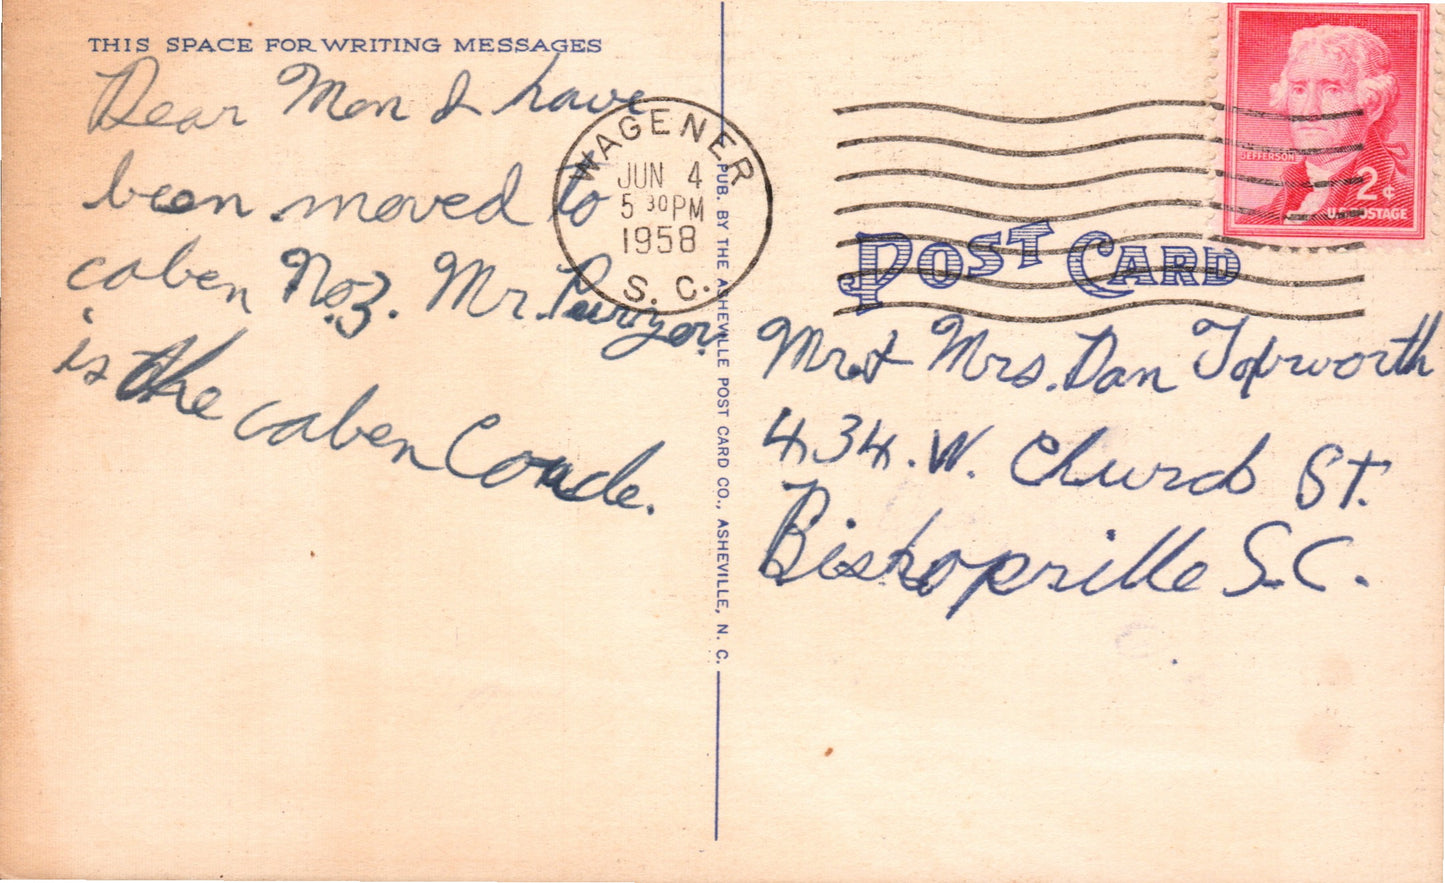 THIS SPACE FOR WRITING MESSAGES
Dear Mom I have
been moved to
caben No 3. Mr.
is the caben
WAGENER
JUN 4
5 30 PM
1958
S. C.
PUB. BY THE ASHEVILLE POST CARD CO., ASHEVILLE, N. C.
JEFFERSON
2¢
U.S. POSTAGE
POST CARD
Mr. & Mrs. Dan
434. W. Church St.
Bishopville S.C.